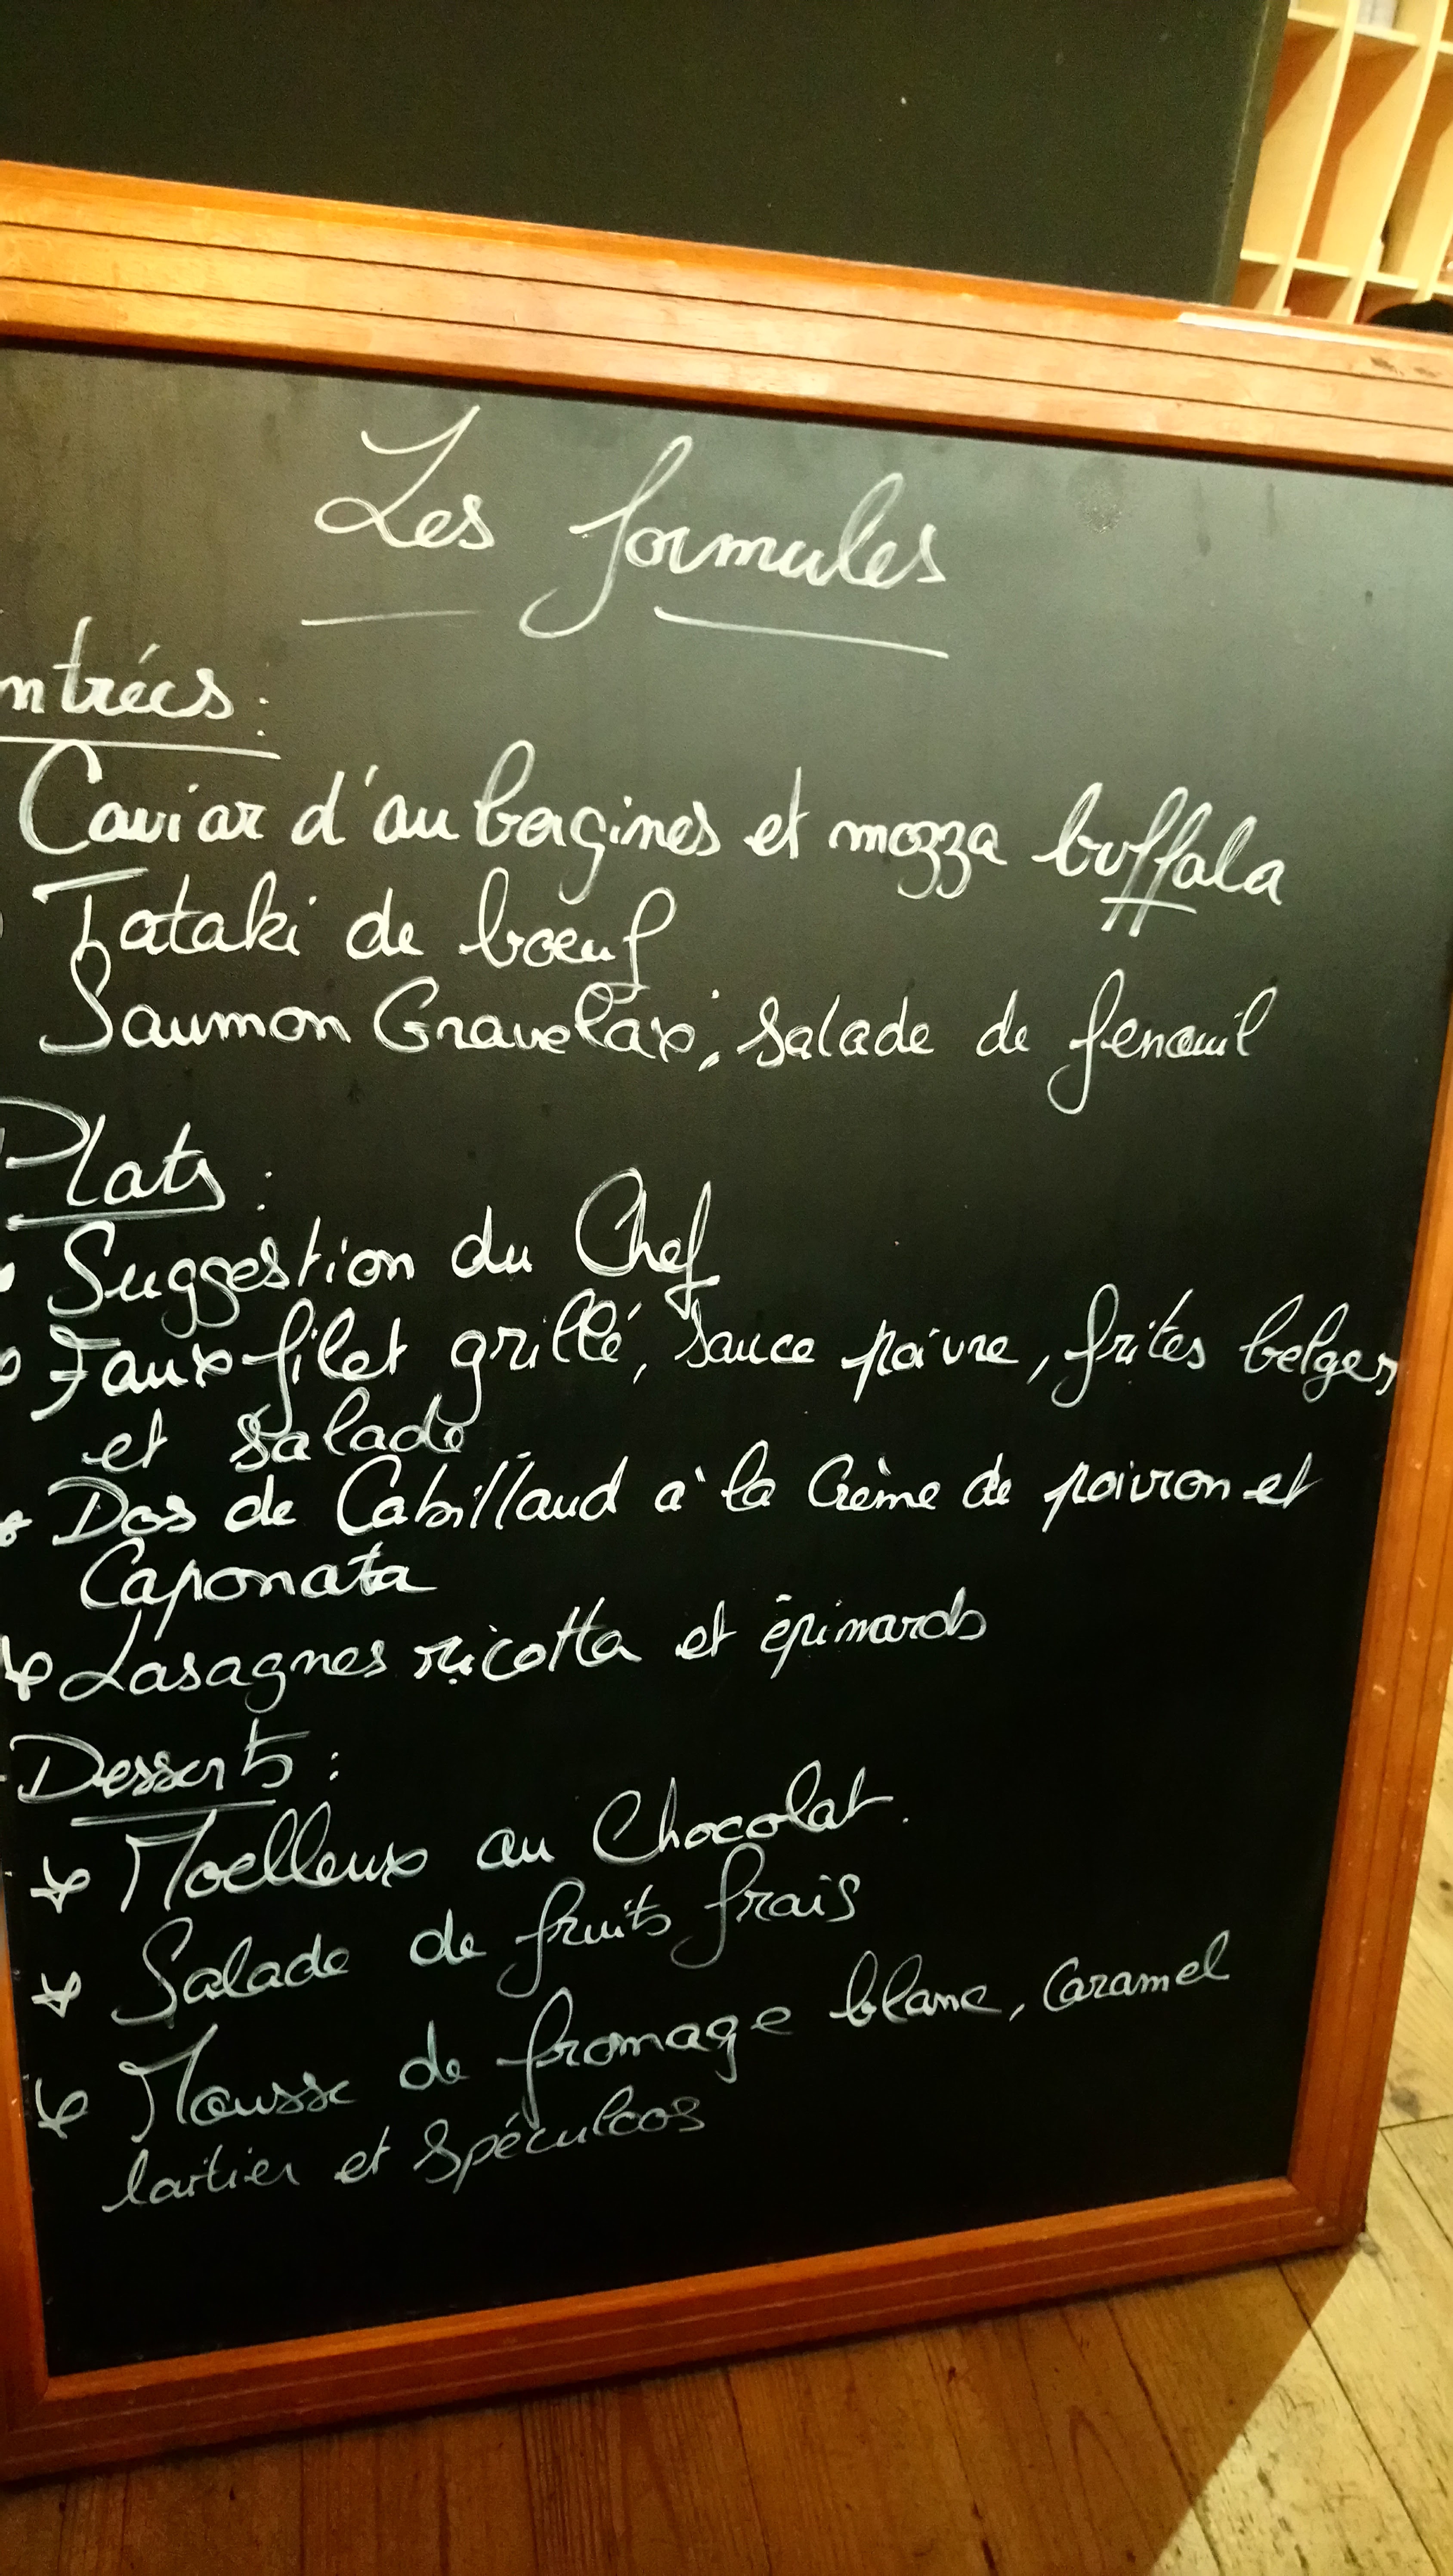 Les formules
ntrées :
Caviar d'aubergines et mozza buffala
Tataki de boeuf
Saumon Gravelax, salade de fenouil
Plats :
Suggestion du Chef
Faux-filet grillé, sauce poivre, frites belges
et salade
Dos de Cabillaud à la Crème de poivron et
Caponata
Lasagnes ricotta et épinards
Desserts :
Moelleux au Chocolat.
Salade de fruits frais
Mousse de fromage blanc, Caramel
laitier et Spéculoos